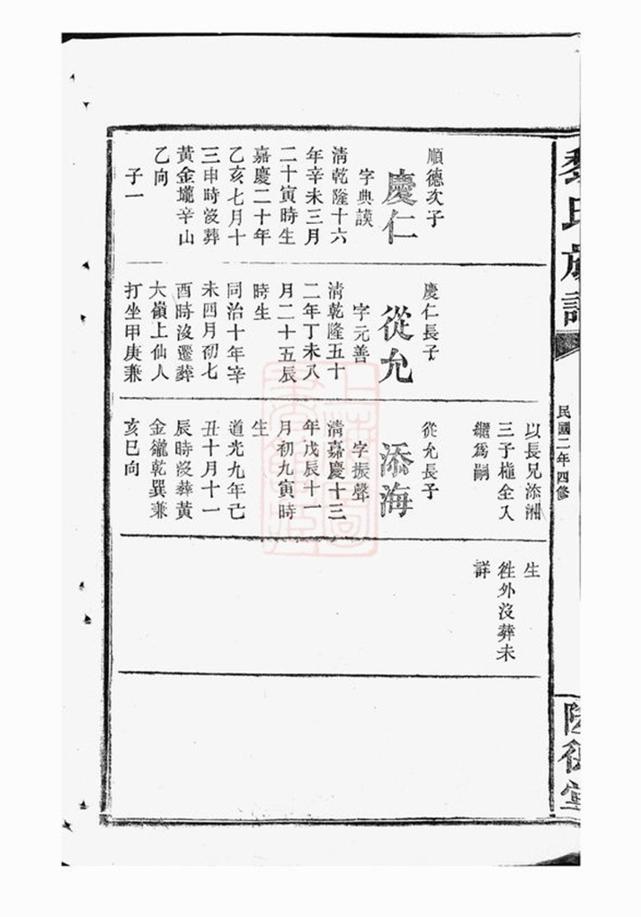 氏族譜
民國二年四修
堂
以長兄添洲
三子權全入
繼為嗣
生
徃外沒葬未
詳
順德次子
慶仁
字典謨
清乾隆十六
年辛未三月
二十寅時生
嘉慶二十年
乙亥七月十
三申時沒葬
黃金壠辛山
乙向
子一
慶仁長子
從允
字元善
清乾隆五十
二年丁未八
月二十五辰
時生
同治十年辛
未四月初七
酉時沒遷葬
大嶺上仙人
打坐甲庚兼
從允長子
添海
字振聲
清嘉慶十三
年戊辰十一
月初九寅時
生
道光九年己
丑十月十一
辰時沒葬黃
金壠乾巽兼
亥巳向